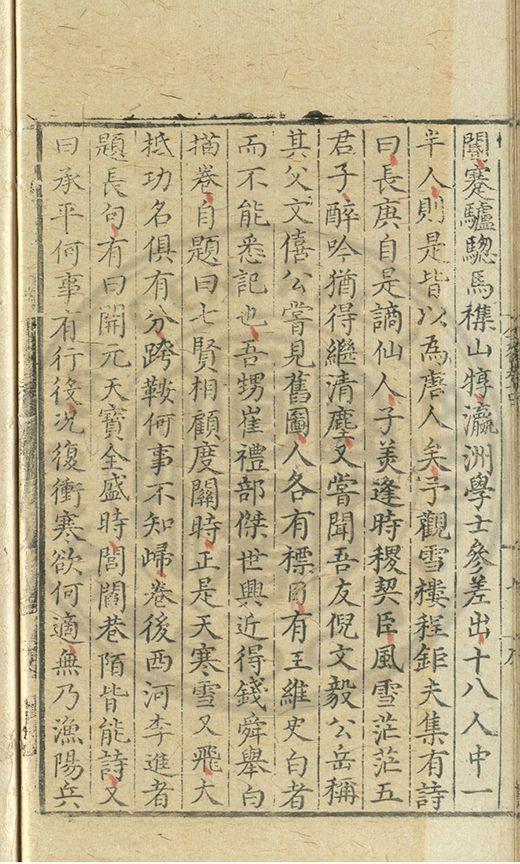 關蹇驢驄馬襍山㹀瀛洲學士參差出十八人中一
半人則是皆以為唐人矣予觀雪樓程鉅夫集有詩
曰長庚自是謫仙人子美逢時稷契臣風雪茫茫五
君子醉吟猶得繼清塵又嘗聞吾友倪文毅公岳稱
其父文僖公嘗見舊圖人各有標目有王維史白者
而不能悉記也吾甥崔禮部傑世興近得錢舜舉白
描卷自題曰七賢相顧度關時正是天寒雪又飛大
抵功名俱有分跨鞍何事不知歸卷後西河李進者
題長句有曰開元天寶全盛時閭閻巷陌皆能詩又
曰承平何事有行役況復衝寒欲何適無乃漁陽兵